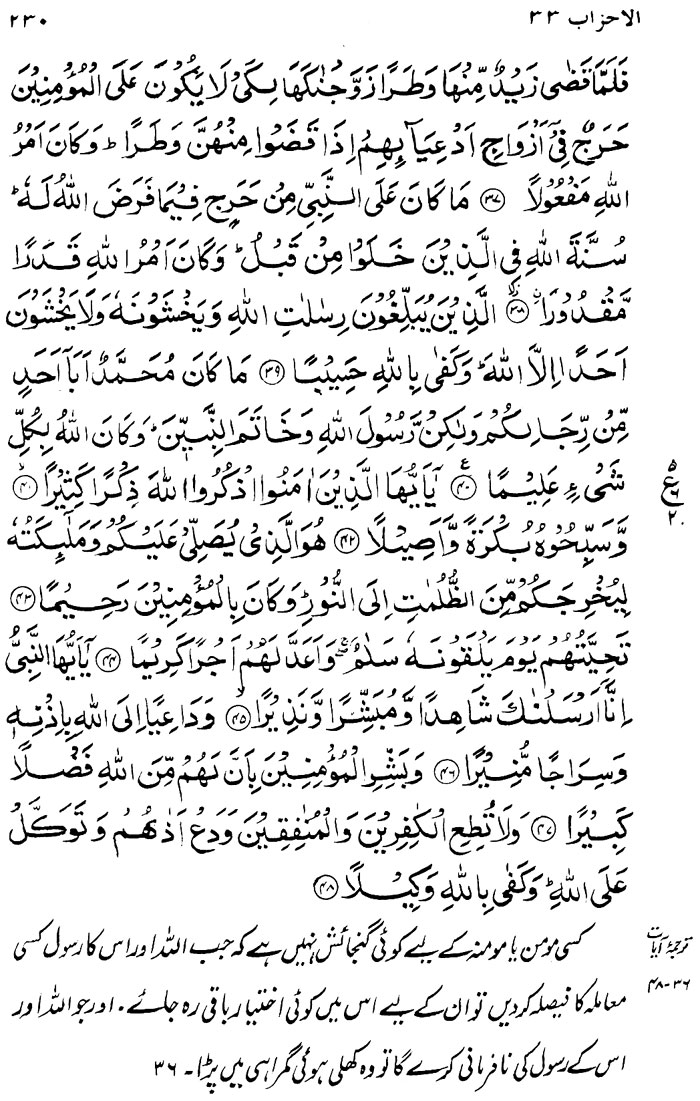 الاحزاب ۳۳
۲۳۰
فَلَمَّا قَضٰى زَيْدٌ مِّنْهَا وَطَرًا زَوَّجْنٰكَهَا لِكَىْ لَا يَكُوْنَ عَلَى الْمُؤْمِنِيْنَ
حَرَجٌ فِىْٓ اَزْوَاجِ اَدْعِيَآىِٕهِمْ اِذَا قَضَوْا مِنْهُنَّ وَطَرًا ؕ وَكَانَ اَمْرُ
اللّٰهِ مَفْعُوْلًا ﴿۳۷﴾ مَا كَانَ عَلَى النَّبِىِّ مِنْ حَرَجٍ فِيْمَا فَرَضَ اللّٰهُ لَهٗ ؕ
سُنَّةَ اللّٰهِ فِى الَّذِيْنَ خَلَوْا مِنْ قَبْلُ ؕ وَكَانَ اَمْرُ اللّٰهِ قَدَرًا
مَّقْدُوْرَا ﴿۳۸﴾ الَّذِيْنَ يُبَلِّغُوْنَ رِسٰلٰتِ اللّٰهِ وَيَخْشَوْنَهٗ وَلَا يَخْشَوْنَ
اَحَدًا اِلَّا اللّٰهَ ؕ وَكَفٰى بِاللّٰهِ حَسِيْبًا ﴿۳۹﴾ مَا كَانَ مُحَمَّدٌ اَبَآ اَحَدٍ
مِّنْ رِّجَالِكُمْ وَلٰكِنْ رَّسُوْلَ اللّٰهِ وَخَاتَمَ النَّبِيّٖنَ ؕ وَكَانَ اللّٰهُ بِكُلِّ
شَىْءٍ عَلِيْمًا ﴿۴۰﴾ يٰٓاَيُّهَا الَّذِيْنَ اٰمَنُوا اذْكُرُوا اللّٰهَ ذِكْرًا كَثِيْرًا ﴿۴۱﴾
ع ۶ ۲۰
وَّسَبِّحُوْهُ بُكْرَةً وَّاَصِيْلًا ﴿۴۲﴾ هُوَ الَّذِىْ يُصَلِّىْ عَلَيْكُمْ وَمَلٰٓىِٕكَتُهٗ
لِيُخْرِجَكُمْ مِّنَ الظُّلُمٰتِ اِلَى النُّوْرِ ؕ وَكَانَ بِالْمُؤْمِنِيْنَ رَحِيْمًا ﴿۴۳﴾
تَحِيَّتُهُمْ يَوْمَ يَلْقَوْنَهٗ سَلٰمٌ ۖۚ وَاَعَدَّ لَهُمْ اَجْرًا كَرِيْمًا ﴿۴۴﴾ يٰٓاَيُّهَا النَّبِىُّ
اِنَّآ اَرْسَلْنٰكَ شَاهِدًا وَّمُبَشِّرًا وَّنَذِيْرًا ﴿۴۵﴾ وَّدَاعِيًا اِلَى اللّٰهِ بِاِذْنِهٖ
وَسِرَاجًا مُّنِيْرًا ﴿۴۶﴾ وَبَشِّرِ الْمُؤْمِنِيْنَ بِاَنَّ لَهُمْ مِّنَ اللّٰهِ فَضْلًا
كَبِيْرًا ﴿۴۷﴾ وَلَا تُطِعِ الْكٰفِرِيْنَ وَالْمُنٰفِقِيْنَ وَدَعْ اَذٰىهُمْ وَتَوَكَّلْ
عَلَى اللّٰهِ ؕ وَكَفٰى بِاللّٰهِ وَكِيْلًا ﴿۴۸﴾
ترجمۂ آیات
۳۶-۴۸
کسی مومن یا مومنہ کے لیے کوئی گنجائش نہیں ہے کہ جب اللہ اور اس کا رسول کسی
معاملہ کا فیصلہ کر دیں تو ان کے لیے اس میں کوئی اختیار باقی رہ جائے۔ اور جو اللہ اور
اس کے رسول کی نافرمانی کرے گا تو وہ کھلی ہوئی گمراہی میں پڑا۔ ۳۶